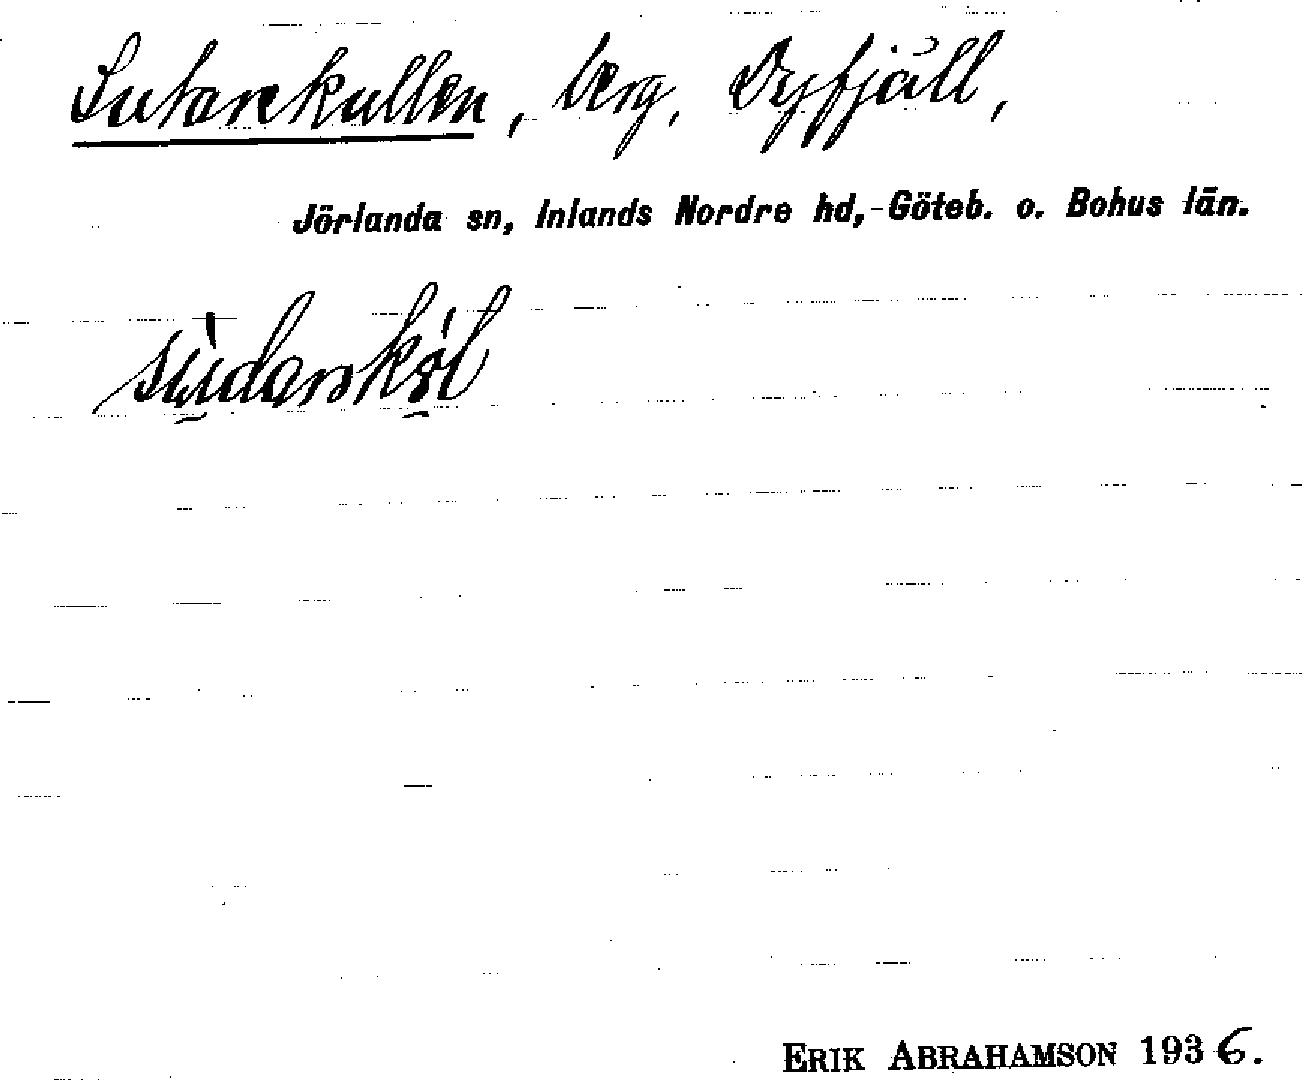 Sutarekullen, berg, Dyfjäll,
Jörlanda sn, Inlands Nordre hd, Göteb. o. Bohus län.
ERIK ABRAHAMSON 1936.